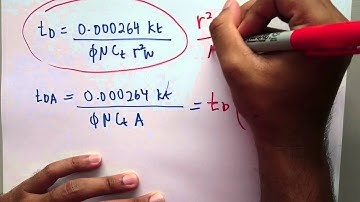 tD = 0.000264 kt / φ N Ct r²w r²
tDA = 0.000264 kt / φ N Ct A = tD (